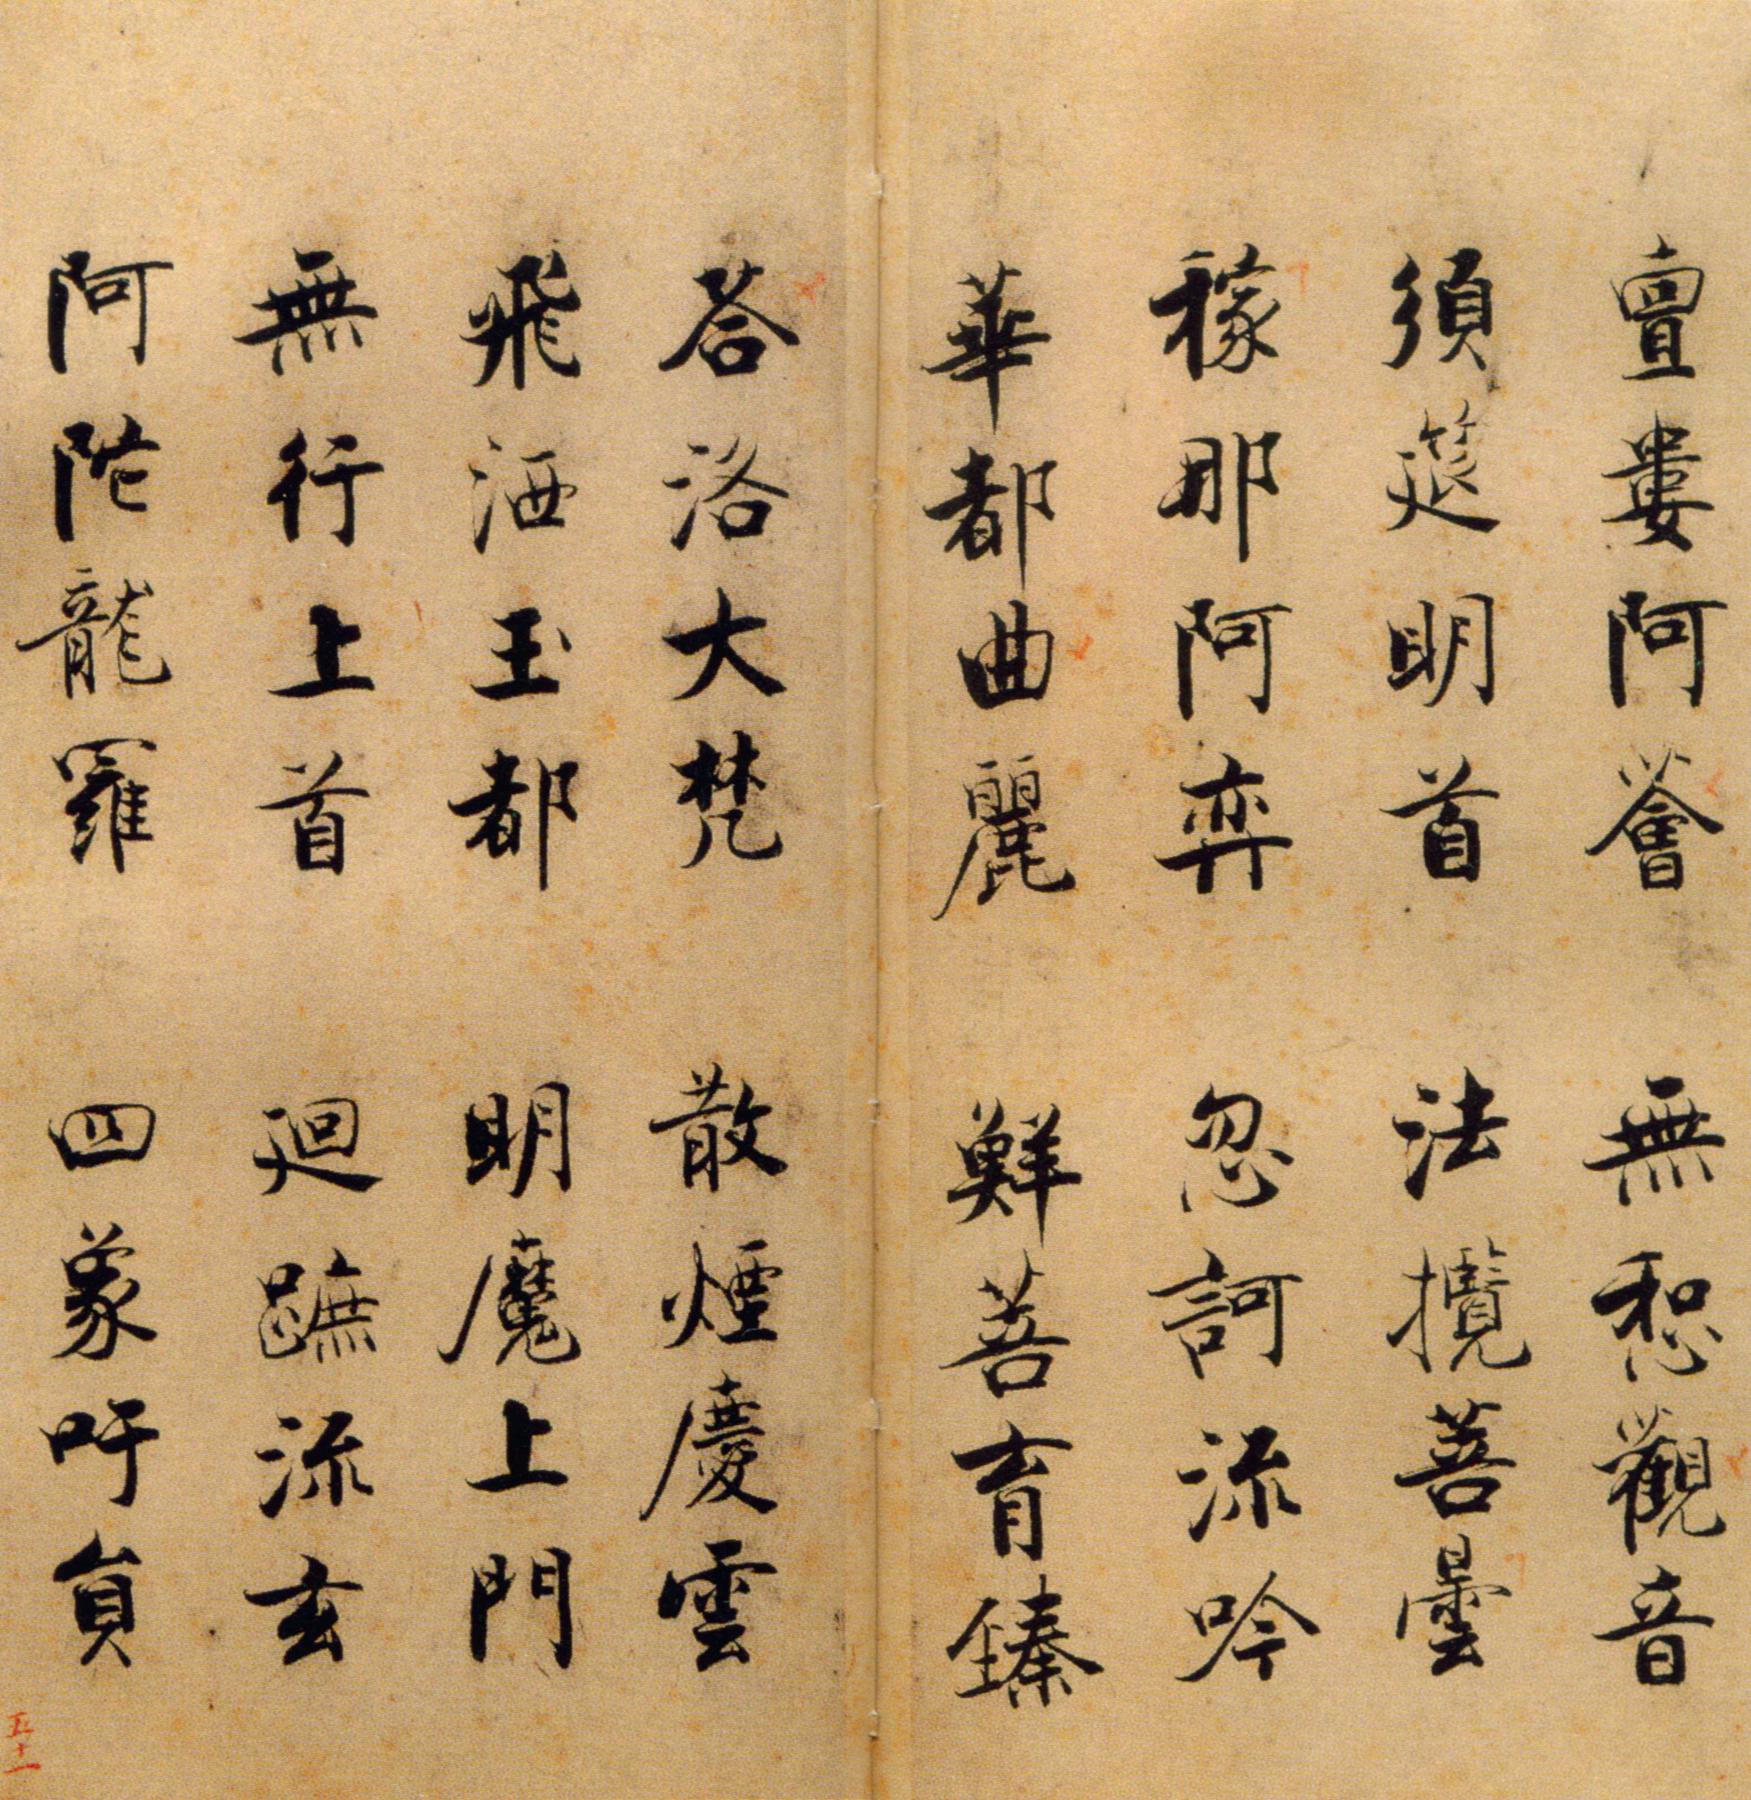 亶婁阿薈　無惒觀音
須筵明首　法攬菩曇
稼那阿弈　忽訶流吟
華都曲麗　鮮菩育臻
荅洛大梵　散煙慶雲
飛洒玉都　明魔上門
無行上首　迴蹠流玄
阿陀龍羅　四象吁員
五十一